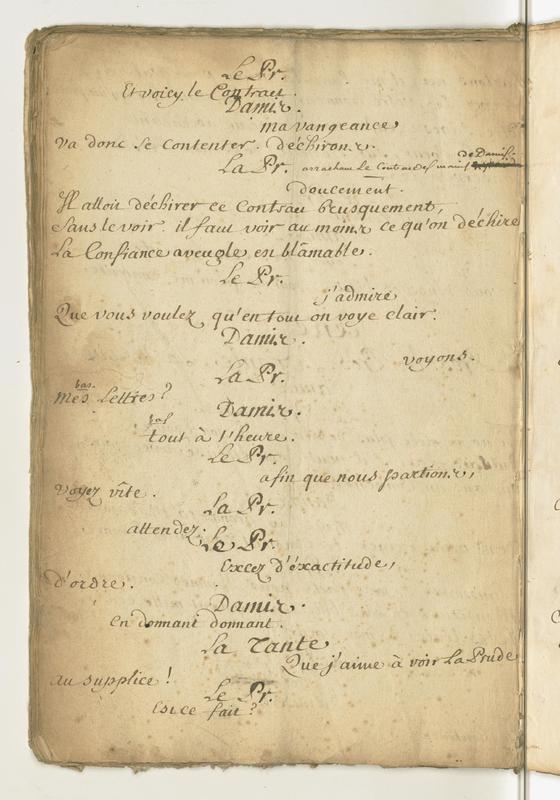 Le Pr.
Et voicy le Contract.
Damis.
ma vangeance
va donc se contenter. déchirons.
La Pr. arrachant le Contract des mains de Damis.
doucement.
Il alloit déchirer ce Contract brusquement,
sans le voir. il faut voir au moins ce qu'on déchire
La Confiance aveugle est blâmable.
Le Pr.
j'admire
Que vous voulez qu'en tout on voye clair.
Damis.
voyons.
La Pr.
bas.
mes Lettres?
Damis.
bas
tout à l'heure.
Le Pr.
afin que nous partions,
voyez vîte.
La Pr.
attendez.
Le Pr.
Excez d'éxactitude,
d'ordre.
Damis.
en donnant donnant.
La Tante
Que j'aime à voir La Prude
au supplice!
Le Pr.
Est ce fait?